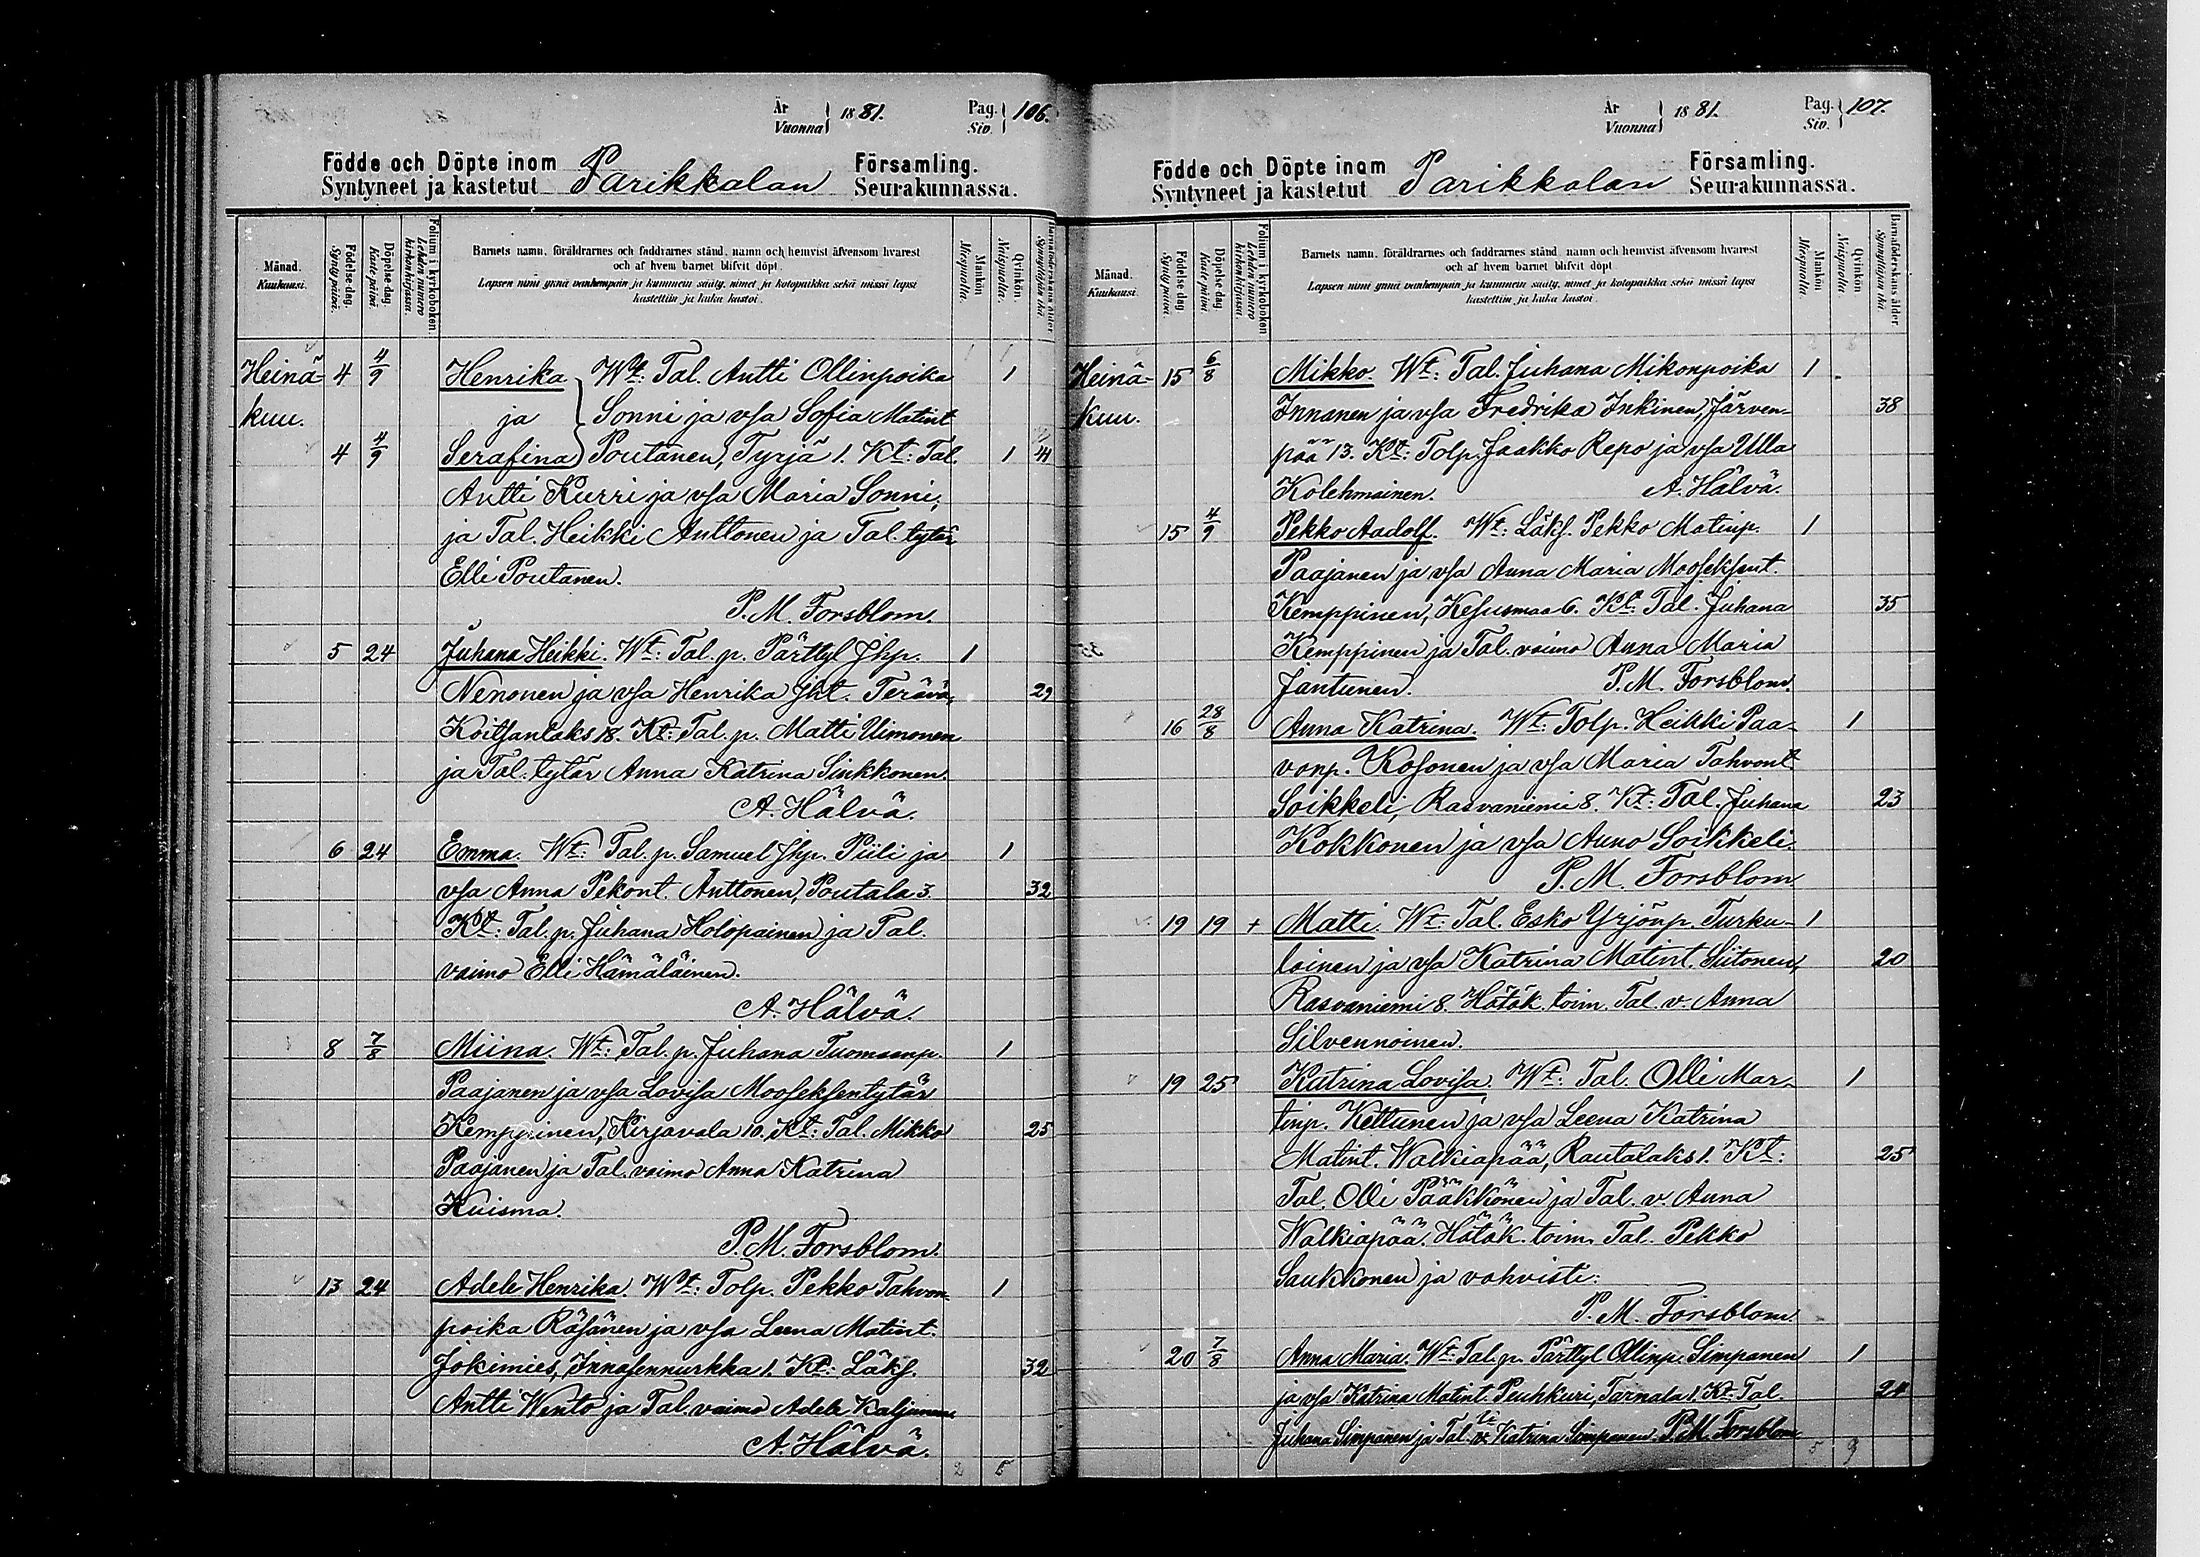 År
Vuonna} 1881. Pag.
Siv.} 106.
Födde och Döpte inom
Syntyneet ja kastetut Parikkalan Församling.
Seurakunnassa.
Månad.
Kuukausi.
Födelse dag.
Syntypäivä.
Döpelse dag.
Kaste päivä.
Folium i kyrkoboken.
Lehden numero kirkonkirjassa.
Barnets namn, föräldrarnes och faddrarnes stånd, namn och hemvist äfvensom hvarest
och af hvem barnet blifvit döpt.
Lapsen nimi ynnä vanhempain ja kummein sääty, nimet ja kotopaikka sekä missä lapsi
kastettiin ja kuka kastoi.
Mankön
Miespuolia.
Qvinkön
Naispuolia.
Barnaföderskans ålder
Synnyttäjän ikä
Heinä- 4 4/9 Henrika Wt: Tal. Antti Ollinpoika 1
kuu. ja Sonni ja vsa Sofia Matint
4 4/9 Serafina Poutanen, Tyrjä 1. Kt: Tal. 1 41
Antti Kurri ja vsa Maria Sonni,
ja Tal. Heikki Anttonen ja Tal. tytär
Elli Poutanen.
P. M. Forsblom.
5 24 Juhana Heikki. Wt: Tal. p. Pärttyl Jhp. 1
Nenonen ja vsa Henrika Jht. Terävä, 29
Koitsanlaks 18. Kt: Tal. p. Matti Uimonen
ja Tal. tytär Anna Katrina Sinkkonen.
A. Hälvä.
6 24 Emma. Wt: Tal. p. Samuel Jhp. Piili ja 1
vsa Anna Pekont. Anttonen, Poutala 3. 32
Kt: Tal. p. Juhana Holopainen ja Tal.
vaimo Elli Hämäläinen.
A. Hälvä.
8 7/8 Miina. Wt: Tal. p. Juhana Tuomaanp. 1
Paajanen ja vsa Lovisa Mooseksentytär
Kemppinen, Kirjavala 10. Kt: Tal. Mikko 25
Paajanen ja Tal. vaimo Anna Katrina
Kuisma.
P. M. Forsblom.
13 24 Adele Henrika. Wt: Tolp. Pekko Tahvon- 1
poika Räsänen ja vsa Leena Matint.
Jokimies, Innasennurkka 1. Kt: Läks. 32
Antti Wento ja Tal. vaimo Adele Kaljunen
A. Hälvä.
2 5
År
Vuonna} 1881. Pag.
Siv.} 107.
Födde och Döpte inom
Syntyneet ja kastetut Parikkalan Församling.
Seurakunnassa.
Månad.
Kuukausi.
Födelse dag.
Syntypäivä.
Döpelse dag.
Kaste päivä.
Folium i kyrkoboken
Lehden numero kirkonkirjassa.
Barnets namn, föräldrarnes och faddrarnes stånd, namn och hemvist äfvensom hvarest
och af hvem barnet blifvit döpt
Lapsen nimi ynnä vanhempain ja kummein sääty, nimet ja kotopaikka sekä missä lapsi
kastettiin ja kuka kastoi.
Mankön
Miespuolia.
Qvinkön
Naispuolia.
Barnaföderskans ålder
Synnyttäjän ikä
Heinä- 15 6/8 Mikko Wt: Tal. Juhana Mikonpoika 1
kuu. Innanen ja vsa Fredrika Inkinen, Järven- 38
pää 13. Kt: Tolp. Jaakko Repo ja vsa Ulla
Kolehmainen. A. Hälvä.
15 4/9 Pekko Aadolf. Wt: Läks. Pekko Matinp. 1
Paajanen ja vsa Anna Maria Mooseksent.
Kemppinen, Kesusmaa 6. Kt: Tal. Juhana 35
Kemppinen ja Tal. vaimo Anna Maria
Jantunen. P. M. Forsblom.
16 28/8 Anna Katrina. Wt: Tolp. Heikki Paa- 1
vonp. Kosonen ja vsa Maria Tahvont.
Soikkeli, Rasvaniemi 8. Kt: Tal. Juhana 23
Kokkonen ja vsa Anna Soikkeli.
P. M. Forsblom
19 19 + Matti. Wt: Tal. Esko Yrjönp. Turku- 1
lainen ja vsa Katrina Matint. Siitonen, 20
Rasvaniemi 8. Hätäk. toim. Tal. v. Anna
Silvennoinen.
19 25 Katrina Lovisa. Wt: Tal. Olli Mar- 1
tinp. Kettunen ja vsa Leena Katrina
Matint. Walkiapää, Rautalaks 1. Kt: 25
Tal. Olli Pääkkönen ja Tal. v. Anna
Walkiapää. Hätäk. toim. Tal. Pekko
Saukkonen ja vahvisti:
P. M. Forsblom.
20 7/8 Anna Maria. Wt: Tal. p. Pärttyl Ollinp. Simpanen 1
ja vsa Katrina Matint. Peuhkuri, Tarnala 1. Kt: Tal. 24
Juhana Simpanen ja Tal. v. Katrina Simpanen. P. M. Forsblom
5 9